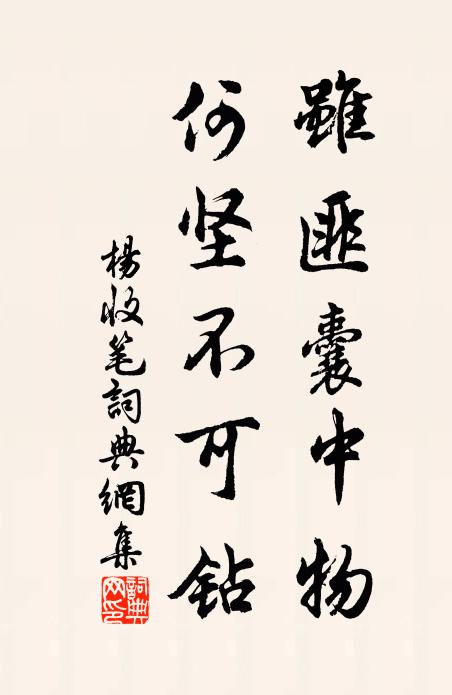 雖匪囊中物
何坚不可鉆
楊收笔詞典網集
詞典
网印